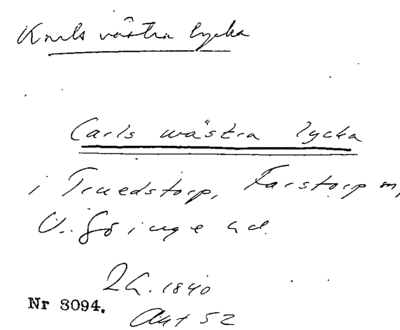 Karls västra lycka
Carls wästra lycka
i Truedstorp, Farstorp sn,
V. Göinge hd.
LA. 1840
Nr 8094.
Akt 52